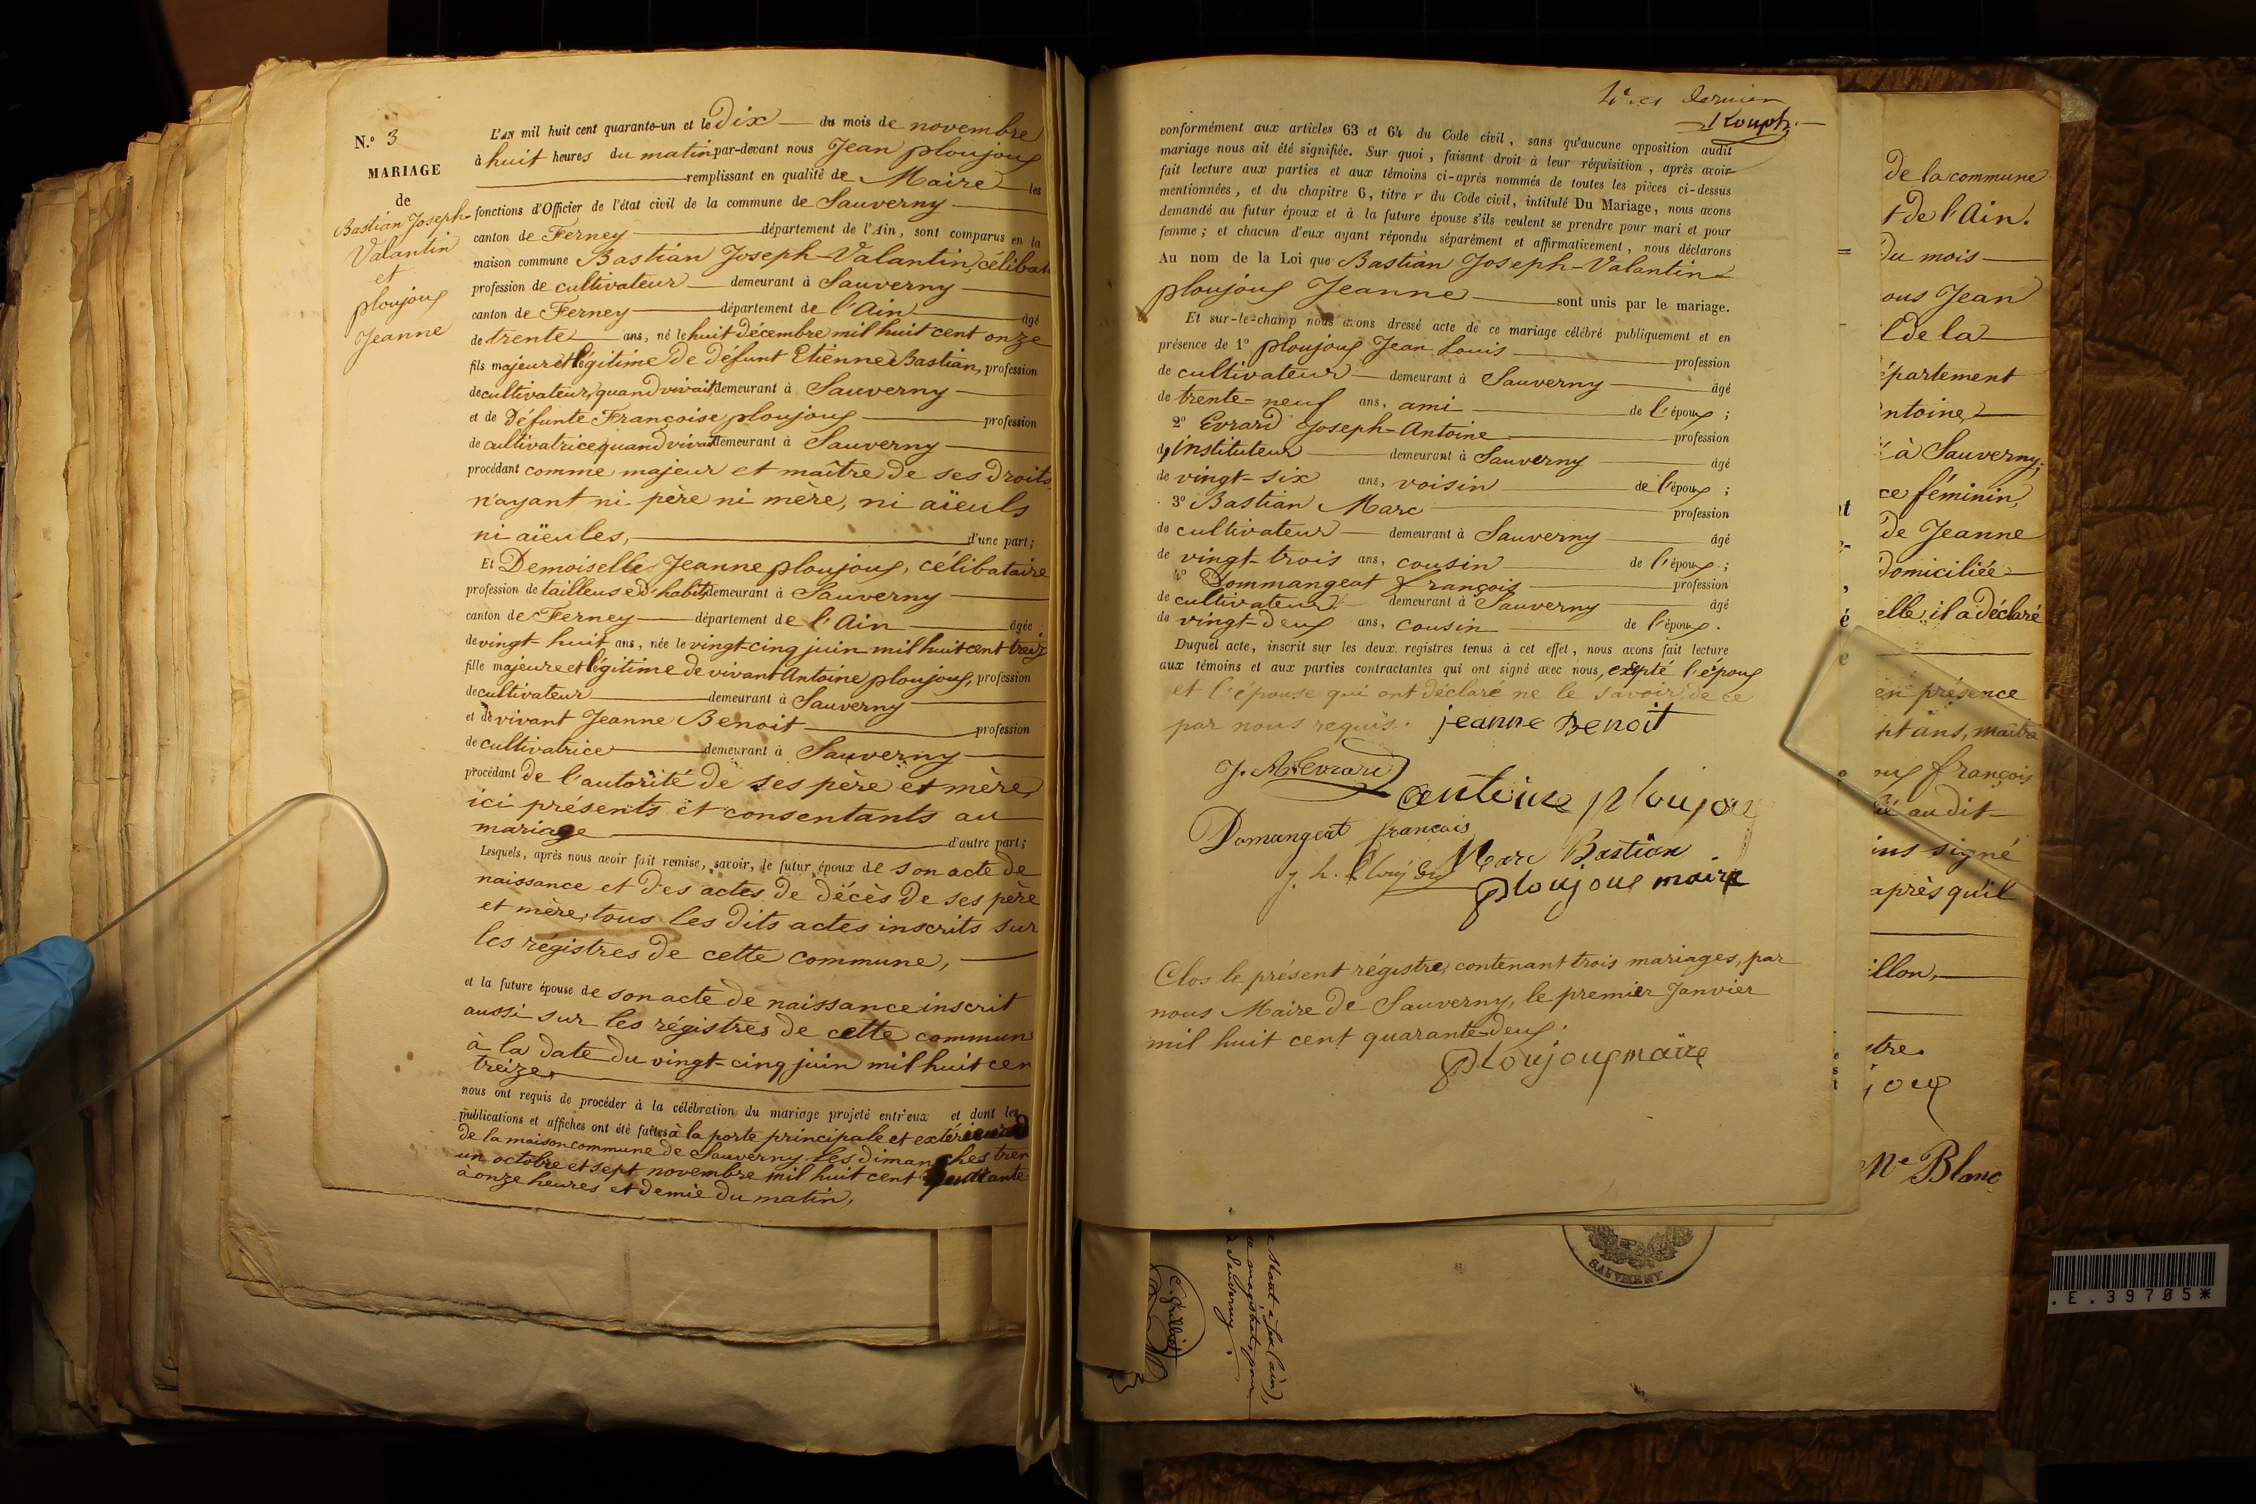 N.º 3
MARIAGE
de
Bastian Joseph-
Valantin
et
ploujoux
Jeanne
L'AN mil huit cent quarante-un et le Dix du mois de novembre
à huit heures du matin par-devant nous Jean ploujoux
remplissant en qualité de Maire les
fonctions d'Officier de l'état civil de la commune de Sauverny
canton de Ferney département de l'Ain, sont comparus en la
maison commune Bastian Joseph-Valantin, célibat
profession de cultivateur demeurant à Sauverny
canton de Ferney département de l'Ain âgé
de trente ans, né le huit décembre mil huit cent onze
fils majeur et légitime de défunt Etienne Bastian, profession
de cultivateur, quand vivait demeurant à Sauverny
et de Défunte Françoise ploujoux profession
de cultivatrice quand vivait demeurant à Sauverny
procédant comme majeur et maître de ses droits,
n'ayant ni père ni mère, ni aïeuls
ni aïeules, d'une part;
Et Demoiselle Jeanne ploujoux, célibataire
profession de tailleuse d'habits demeurant à Sauverny
canton de Ferney département de l'Ain âgée
de vingt-huit ans, née le vingt-cinq juin mil huit cent treize
fille majeure et légitime de vivant Antoine ploujoux, profession
de cultivateur demeurant à Sauverny
et de vivant Jeanne Benoit profession
de cultivatrice demeurant à Sauverny
procédant de l'autorité de ses père et mère
ici présents et consentants au
mariage d'autre part;
Lesquels, après nous avoir fait remise, savoir, le futur époux de son acte de
naissance et des actes de décès de ses père
et mère, tous les dits actes inscrits sur
les régistres de cette commune,
et la future épouse de son acte de naissance inscrit
aussi sur les régistres de cette commun
à la date du vingt-cinq juin mil huit cen
treize,
nous ont requis de procéder à la célébration du mariage projeté entr'eux et dont les
publications et affiches ont été faites à la porte principale et extérieure
de la maison commune de Sauverny les dimanches tren
un octobre et sept novembre mil huit cent quarante
à onze heures et demie du matin,
dernier
conformément aux articles 63 et 64 du Code civil, sans qu'aucune opposition audit
mariage nous ait été signifiée. Sur quoi, faisant droit à leur réquisition, après avoir
fait lecture aux parties et aux témoins ci-après nommés de toutes les pièces ci-dessus
mentionnées, et du chapitre 6, titre v du Code civil, intitulé Du Mariage, nous avons
demandé au futur époux et à la future épouse s'ils veulent se prendre pour mari et pour
femme; et chacun d'eux ayant répondu séparément et affirmativement, nous déclarons
Au nom de la Loi que Bastian Joseph-Valantin
ploujoux Jeanne sont unis par le mariage.
Et sur-le-champ nous avons dressé acte de ce mariage célébré publiquement et en
présence de 1º ploujoux Jean Louis profession
de cultivateur demeurant à Sauverny âgé
de trente-neuf ans, ami de l'époux;
2º Evrard Joseph-Antoine profession
d'instituteur demeurant à Sauverny âgé
de vingt-six ans, voisin de l'époux;
3º Bastian Marc profession
de cultivateur demeurant à Sauverny âgé
de vingt-trois ans, cousin de l'époux;
4º Dommangeat françois profession
de cultivateur demeurant à Sauverny âgé
de vingt-deux ans, cousin de l'époux.
Duquel acte, inscrit sur les deux registres tenus à cet effet, nous avons fait lecture
aux témoins et aux parties contractantes qui ont signé avec nous, exepté l'époux
et l'épouse qui ont déclaré ne le savoir, de ce
par nous requis. jeanne Benoit
J. A. Evrard
antoine ploujou
Domangeat francois
Marc Bastian
ploujoux maire
Clos le présent régistre, contenant trois mariages, par
nous Maire de Sauverny, le premier Janvier
mil huit cent quarante-deux.
ploujoux maire
de la commune
de l'Ain.
Du mois
ous Jean
l de la
épartement
ntoine
à Sauverny,
ce féminin,
de Jeanne
domiciliée
elle, il a déclaré
en présence
pt ans, maître
françois
au dit
ins signé
après qu'il
illon,
stre.
joux
Mce Blanc
SAUVERNY
.E.39705*